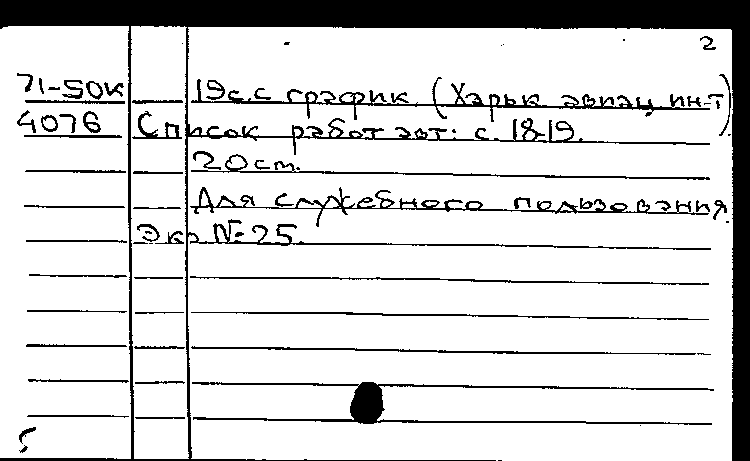 2
71-50к 19с.с график. (Харьк авиац ин-т)
4076 Список работ авт: с. 18-19.
20см.
Для служебного пользования.
Экз №25.
5